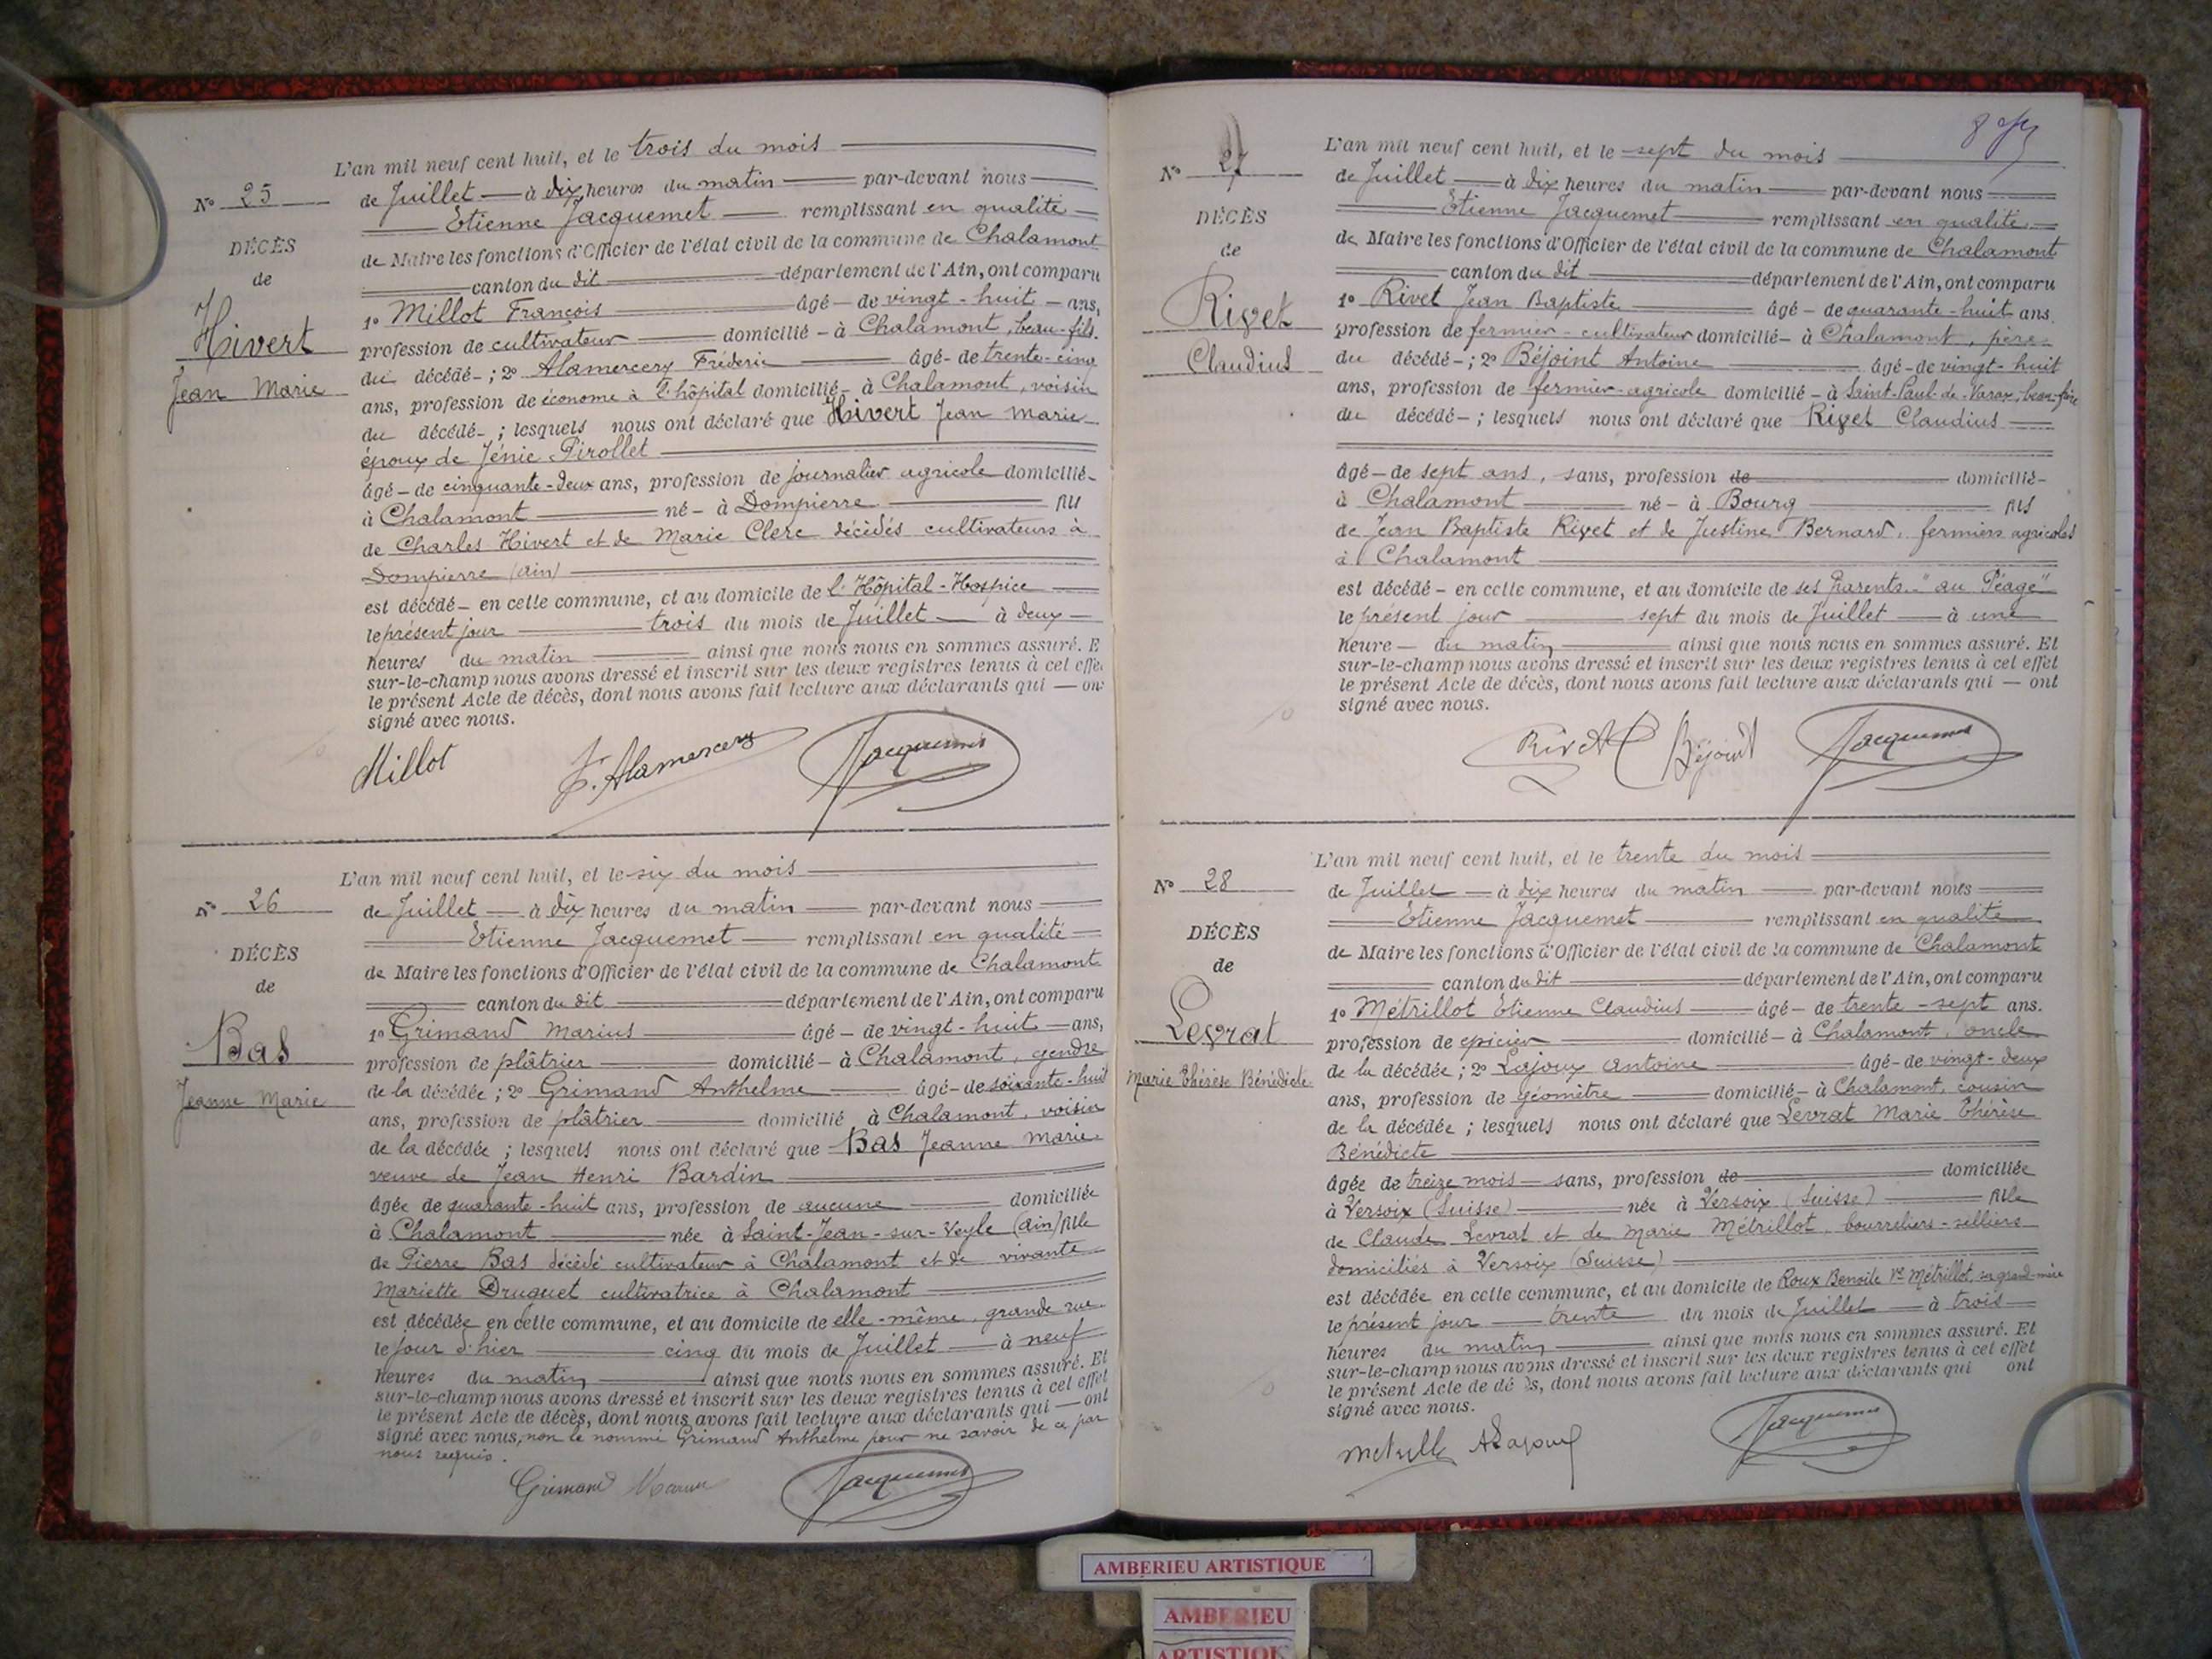 L'an mil neuf cent huit, et le trois du mois
N° 25
de Juillet à dix heures du matin par-devant nous
Etienne Jacquemet remplissant en qualité
DÉCÈS
de Maire les fonctions d'Officier de l'état civil de la commune de Chalamont
de
canton du dit département de l'Ain, ont comparu
Hivert
Jean Marie
1° Millot François âgé de vingt-huit ans,
profession de cultivateur domicilié à Chalamont, beau-fils
du décédé ; 2° Alamercery Fréderic âgé de trente-cinq
ans, profession de économe à l'hôpital domicilié à Chalamont, voisin
du décédé ; lesquels nous ont déclaré que Hivert Jean Marie
époux de Jénie Pirollet
âgé de cinquante-deux ans, profession de journalier agricole domicilié
à Chalamont né à Dompierre fils
de Charles Hivert et de Marie Clerc décédés cultivateurs à
Dompierre (Ain)
est décédé en cette commune, et au domicile de l'Hôpital-Hospice
le présent jour trois du mois de Juillet à deux
heures du matin ainsi que nous nous en sommes assuré. E
sur-le-champ nous avons dressé et inscrit sur les deux registres tenus à cet effe
le présent Acte de décès, dont nous avons fait lecture aux déclarants qui on
signé avec nous.
Millot F. Alamercery Jacquemet
L'an mil neuf cent huit, et le six du mois
N° 26
de Juillet à dix heures du matin par-devant nous
Etienne Jacquemet remplissant en qualité
DÉCÈS
de Maire les fonctions d'Officier de l'état civil de la commune de Chalamont
de
canton du dit département de l'Ain, ont comparu
Bas
Jeanne Marie
1° Grimand Marius âgé de vingt-huit ans,
profession de plâtrier domicilié à Chalamont, gendre
de la décédée ; 2° Grimand Anthelme âgé de soixante-huit
ans, profession de plâtrier domicilié à Chalamont, voisin
de la décédée ; lesquels nous ont déclaré que Bas Jeanne Marie
veuve de Jean Henri Bardin
âgée de quarante-huit ans, profession de aucune domiciliée
à Chalamont née à Saint-Jean-sur-Veyle (Ain) fille
de Pierre Bas décédé cultivateur à Chalamont et de vivante
Mariette Druguet cultivatrice à Chalamont
est décédée en cette commune, et au domicile de elle-même, grande rue
le jour d'hier cinq du mois de Juillet à neuf
heures du matin ainsi que nous nous en sommes assuré. Et
sur-le-champ nous avons dressé et inscrit sur les deux registres tenus à cet effet
le présent Acte de décès, dont nous avons fait lecture aux déclarants qui ont
signé avec nous, non le nommé Grimand Anthelme pour ne savoir de ce par
nous requis.
Grimand Marius Jacquemet
L'an mil neuf cent huit, et le sept du mois
N° 27
de Juillet à dix heures du matin par-devant nous
Etienne Jacquemet remplissant en qualité
DÉCÈS
de Maire les fonctions d'Officier de l'état civil de la commune de Chalamont
de
canton du dit département de l'Ain, ont comparu
Rivet
Claudius
1° Rivet Jean Baptiste âgé de quarante-huit ans.
profession de fermier-cultivateur domicilié à Chalamont, père
du décédé ; 2° Béjoint Antoine âgé de vingt-huit
ans, profession de fermier-agricole domicilié à Saint-Paul-de-Varax, beau-frère
du décédé ; lesquels nous ont déclaré que Rivet Claudius
âgé de sept ans, sans, profession de domicilié
à Chalamont né à Bourg fils
de Jean Baptiste Rivet et de Justine Bernard, fermiers agricoles
à Chalamont
est décédé en cette commune, et au domicile de ses parents "au Péage"
le présent jour sept du mois de Juillet à une
heure du matin ainsi que nous nous en sommes assuré. Et
sur-le-champ nous avons dressé et inscrit sur les deux registres tenus à cet effet
le présent Acte de décès, dont nous avons fait lecture aux déclarants qui ont
signé avec nous.
Rivet Béjoint Jacquemet
L'an mil neuf cent huit, et le trente du mois
N° 28
de Juillet à dix heures du matin par-devant nous
Etienne Jacquemet remplissant en qualité
DÉCÈS
de Maire les fonctions d'Officier de l'état civil de la commune de Chalamont
de
canton du dit département de l'Ain, ont comparu
Levrat
Marie Thérèse Bénédicte
1° Métrillot Etienne Claudius âgé de trente-sept ans.
profession de epicier domicilié à Chalamont, oncle
de la décédée ; 2° Lajoux Antoine âgé de vingt-deux
ans, profession de géomètre domicilié à Chalamont, cousin
de la décédée ; lesquels nous ont déclaré que Levrat Marie Thérèse
Bénédicte
âgée de treize mois sans, profession de domiciliée
à Versoix (Suisse) née à Versoix (Suisse) fille
de Claude Levrat et de Marie Métrillot, bourreliers-selliers
domiciliés à Versoix (Suisse)
est décédée en cette commune, et au domicile de Roux Benoite Ve Métrillot, sa grand-mère
le présent jour trente du mois de Juillet à trois
heures du matin ainsi que nous nous en sommes assuré. Et
sur-le-champ nous avons dressé et inscrit sur les deux registres tenus à cet effet
le présent Acte de dé ès, dont nous avons fait lecture aux déclarants qui ont
signé avec nous.
Metrillot ALajoux Jacquemet
AMBERIEU ARTISTIQUE
AMBERIEU
ARTISTIQU